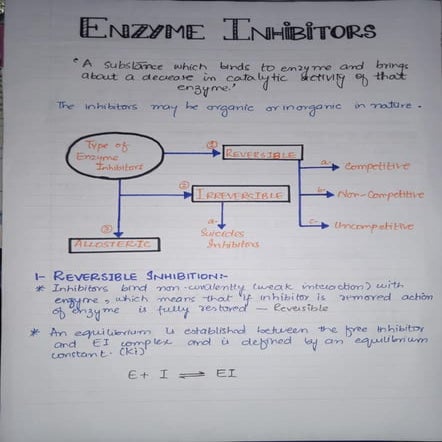 ENZYME INHIBITORS
"A substance which binds to enzyme and brings
about a decrease in catalytic activity of that
enzyme."
The inhibitors may be organic or inorganic in nature.
Type of
Enzyme
Inhibitors
① REVERSIBLE
a- Competitive
b- Non-Competitive
c- Uncompetitive
② IRREVERSIBLE
a- Suicides
Inhibitors
③ ALLOSTERIC
1- REVERSIBLE INHIBITION:-
* Inhibitors bind non-covalently (weak interaction) with
enzyme, which means that if inhibitor is removed action
of enzyme is fully restored - Reversible
* An equilibrium is established between the free inhibitor
and EI complex and is defined by an equilibrium
constant. (Ki)
E + I ⇌ EI